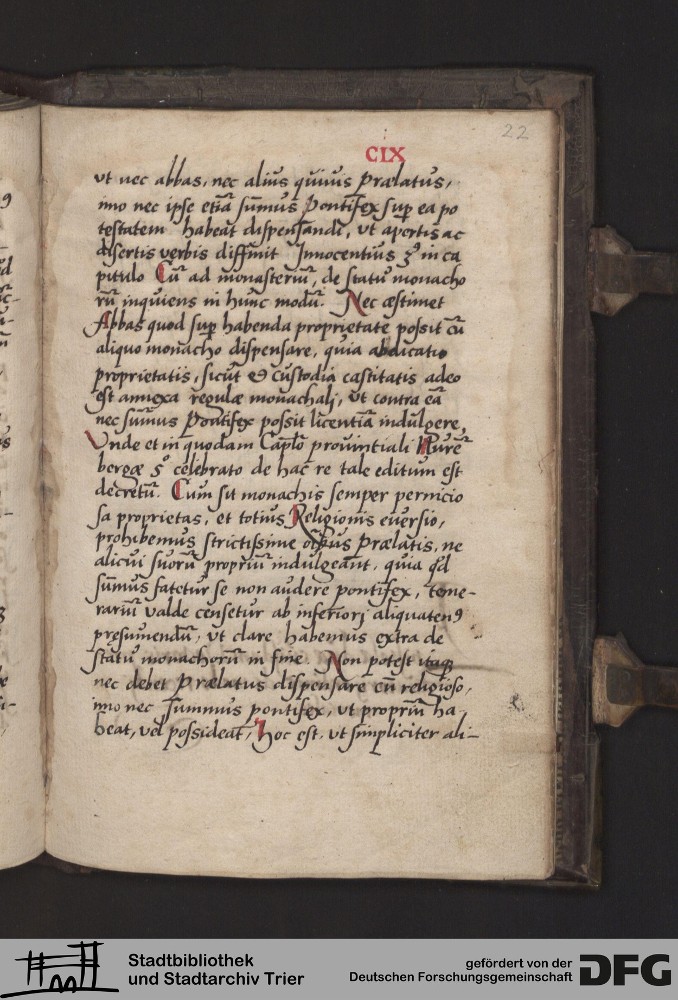 22
CIX
ut nec abbas, nec alius quiuis prælatus,
imo nec ipse etiā sūmus Pontifex sup ea po
testatem habeat dispensandi, ut apertis ac
disertis verbis diffinit Innocentius 3º in ca
pitulo Cū ad monasteriū, de statu monacho
rū inquiens in hunc modū. Nec æstimet
Abbas quod sup habenda proprietate possit cū
aliquo monacho dispensare, quia abdicatio
proprietatis, sicut & custodia castitatis adeo
est annexa regulæ monachali, ut contra eā
nec sūmus Pontifex possit licentiā indulgere,
Unde et in quodam Caplo prouintiali Nurē
bergæ 5º celebrato de hac re tale editum est
decretū. Cum sit monachis semper pernicio
sa proprietas, et totius Religionis euersio,
prohibemus strictissime oībus prælatis, ne
alicui suorū propriū indulgeant, quia qd
sūmus fatetur se non audere pontifex, teme-
rariū valde censetur ab inferiori aliquaten9
pręsumendū, ut clare habemus extra de
statu monachorū in fine. Non potest itaq
nec debet Prælatus dispensare cū religioso,
imo nec summus pontifex, ut propriū ha-
beat, vel possideat, Hoc est, ut simpliciter ali-
Stadtbibliothek
und Stadtarchiv Trier
gefördert von der
Deutschen Forschungsgemeinschaft
DFG